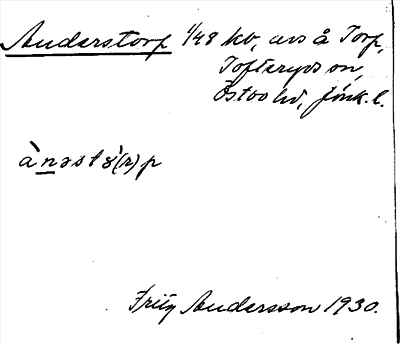 Anderstorp 1/48 hd, avs å Torp,
Tofteryds sn,
Östbo hd, Jönk. l.
ànəstə̀(r)p
Fritz Andersson 1930.